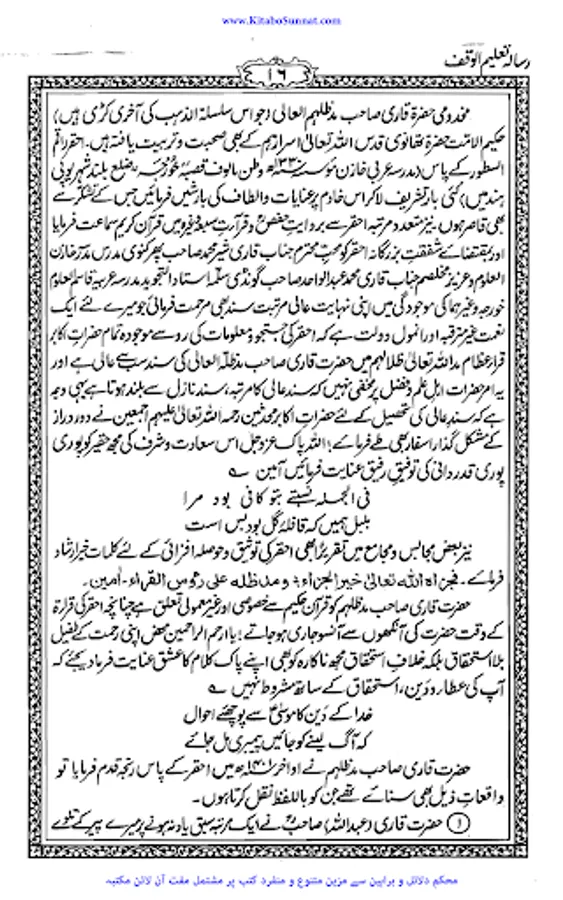 www.KitaboSunnat.com
رسالہ تعلیم الوقف
١٦
مخدومی حضرۃ قاری صاحب مدظلہم العالی (جو اس سلسلۃ الذہب کی آخری کڑی ہیں)
حکیم الامت حضرۃ تھانوی قدس اللہ تعالیٰ اسرارہم کے بھی صحبت و تربیت یافتہ ہیں۔ احقر راقم
السطور کے پاس (مدرسہ عربی خازن وطن مالوف قصبہ خورجہ ضلع بلند شہر یوپی
ہند میں) کئی بار تشریف لا کر اس خادم پر عنایات و الطاف کی بارشیں فرمائیں جس کے تشکر سے
بھی قاصر ہوں۔ نیز متعدد مرتبہ احقر سے بروایت حفص و قرآت سبعہ وغیرہ میں قرآن کریم سماعت فرمایا
اور بمقتضائے شفقت بزرگانہ احقر کو محب محترم جناب قاری شیر محمد صاحب مدرس مدرسہ خازن
العلوم و عزیز مخلصم جناب قاری محمد عبدالواحد صاحب گونڈی سلمہ استاد التجوید مدرسہ عربیہ قاسم العلوم
خورجہ وغیرہما کی موجودگی میں اپنی نہایت عالی مرتبت سند بھی مرحمت فرمائی جو میرے لئے ایک
نعمت غیر مترقبہ اور انمول دولت ہے کہ احقر کی جستجو و معلومات کی رو سے موجودہ تمام حضرات اکابر
قراء عظام مد اللہ تعالیٰ ظلالہم میں حضرت قاری صاحب مدظلہ العالی کی سند سب سے عالی ہے اور
یہ امر حضرات اہل علم و فضل پر مخفی نہیں کہ سند عالی کا مرتبہ، سند نازل سے بلند ہوتا ہے یہی وجہ
ہے کہ سند عالی کی تحصیل کے لئے حضرات اکابر محدثین رحمہ اللہ تعالیٰ علیہم اجمعین نے دور دراز
کے مشکل گذار اسفار بھی طے فرمائے! اللہ پاک عزوجل اس سعادت و شرف کی مجھ حقیر کو پوری
پوری قدردانی کی توفیق رفیق عنایت فرمائیں آمین ؎
فی الجملہ نسبتے بتو کافی بود مرا
بلبل ہمیں کہ قافیۂ گل بود بس است
نیز بعض مجالس و مجامع میں تقریراً بھی احقر کی توثیق و حوصلہ افزائی کے لئے کلمات خیر ارشاد
فرمائے۔ فجزاه اللہ تعالیٰ خیر الجزاء و مد ظلہ علی رؤس القراء۔ آمین۔
حضرت قاری صاحب مدظلہم کو قرآن حکیم سے خصوصی اور غیر معمولی تعلق ہے چنانچہ احقر کی قراۃ
کے وقت حضرت کی آنکھوں سے آنسو جاری ہو جاتے! یا ارحم الراحمین محض اپنی رحمت کے طفیل
بلا استحقاق بلکہ خلاف استحقاق مجھ ناکارہ کو بھی اپنے پاک کلام کا عشق عنایت فرما دیجئے کہ
آپ کی عطا و دین، استحقاق کے ساتھ مشروط نہیں ؎
خدا کے دین کا موسیٰ سے پوچھئے احوال
کہ آگ لینے کو جائیں پیمبری مل جائے
حضرت قاری صاحب مدظلہم نے اواخر میں احقر کے پاس رنجۂ قدم فرمایا تو
واقعات ذیل بھی سنائے تھے جن کو باللفظ نقل کرتا ہوں۔
① حضرت قاری (عبداللہ) صاحبؒ نے ایک مرتبہ سبق یاد نہ ہونے پر میرے پیر کے تلوے
محکم دلائل و براہین سے مزین متنوع و منفرد کتب پر مشتمل مفت آن لائن مکتبہ